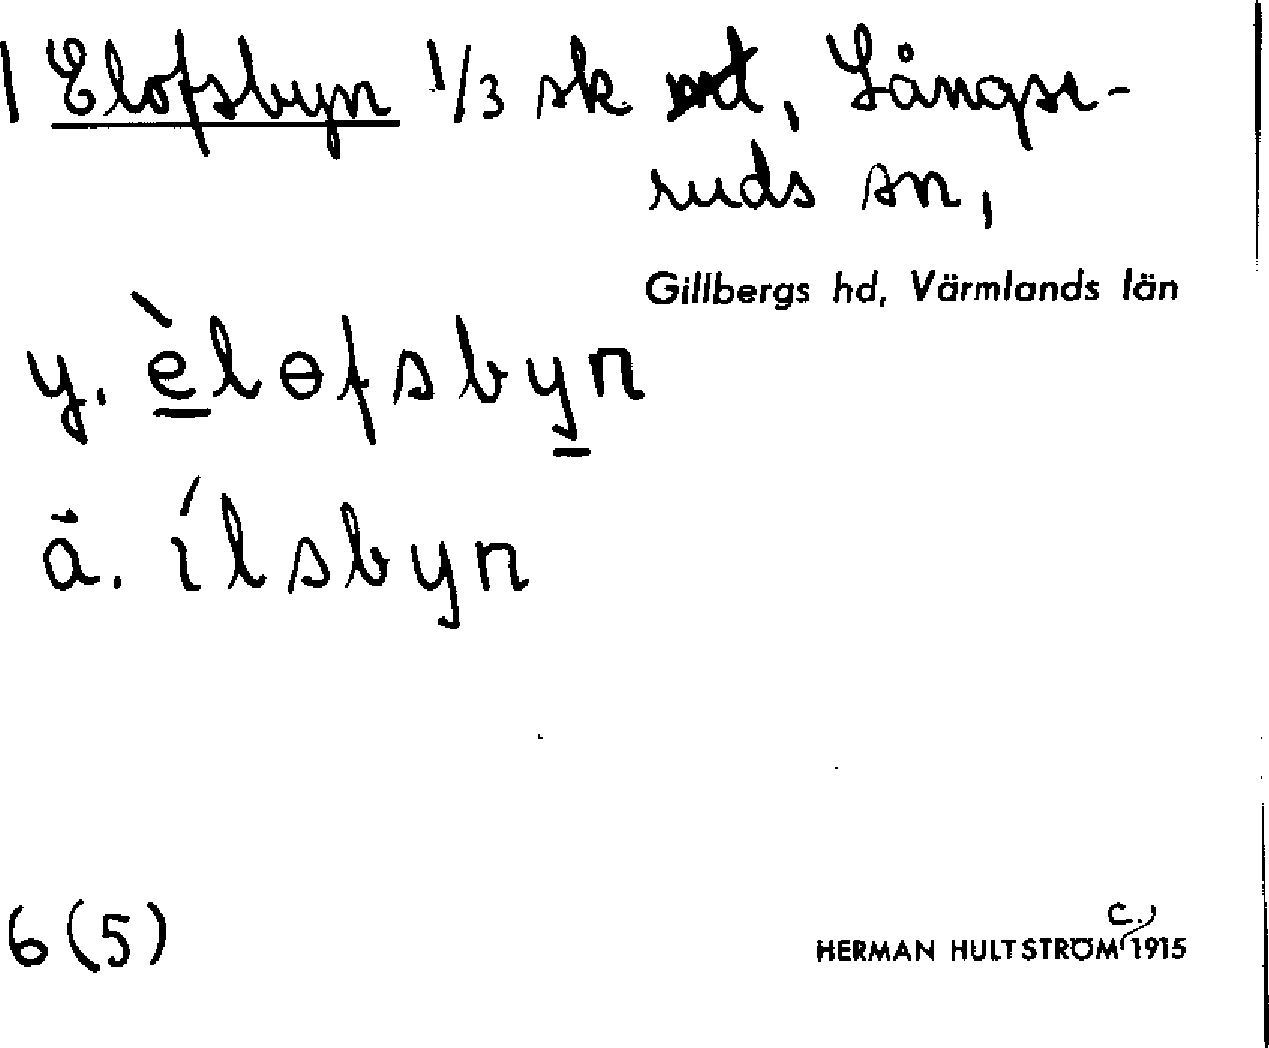 Elofsbyn 1/3 sk mt, Långse-
ruds sn,
Gillbergs hd, Värmlands län
y. è̲lɵfsby̲n
ä. ílsbyn
6 (5)
C.,
HERMAN HULTSTRÖM 1915